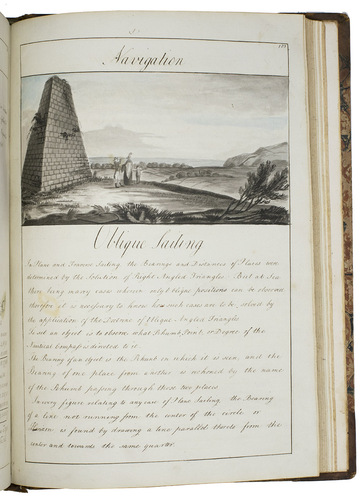 Navigation
Oblique Sailing
In Plane and Traverse Sailing the Bearings and Distances of Places were
determined by the Solution of Right Angled Triangles. But at Sea
there being many cases wherein only Oblique positions can be observed
therefore it is necessary to know how such cases are to be solved by
the application of the Doctrine of Oblique Angled Triangles
To set an Object is to observe what Rhumb, Point, or Degree of the
Nautical Compass is directed to it
The Bearing of an object is the Rhumb in which it is seen and the
Bearing of one place from another is reckoned by the name
of the Rhumb passing through these two places
In every figure relating to any case of Plane Sailing, the Bearing
of a line not running from the center of the circle or
Horizon is found by drawing a line parallel thereto from the
center and towards the same quarter